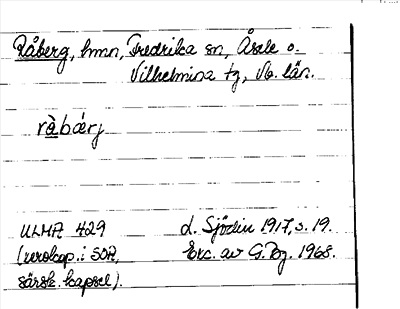 Råberg, hmn, Fredrika sn, Åsele o.
Vilhelmina tg, Vb. län.
rà̠bǽrj
ULMA 429
(xerokop. i SOA,
särsk. kapsel).
L. Sjödin 1917, s. 19.
Exc. av G. Bg. 1968.